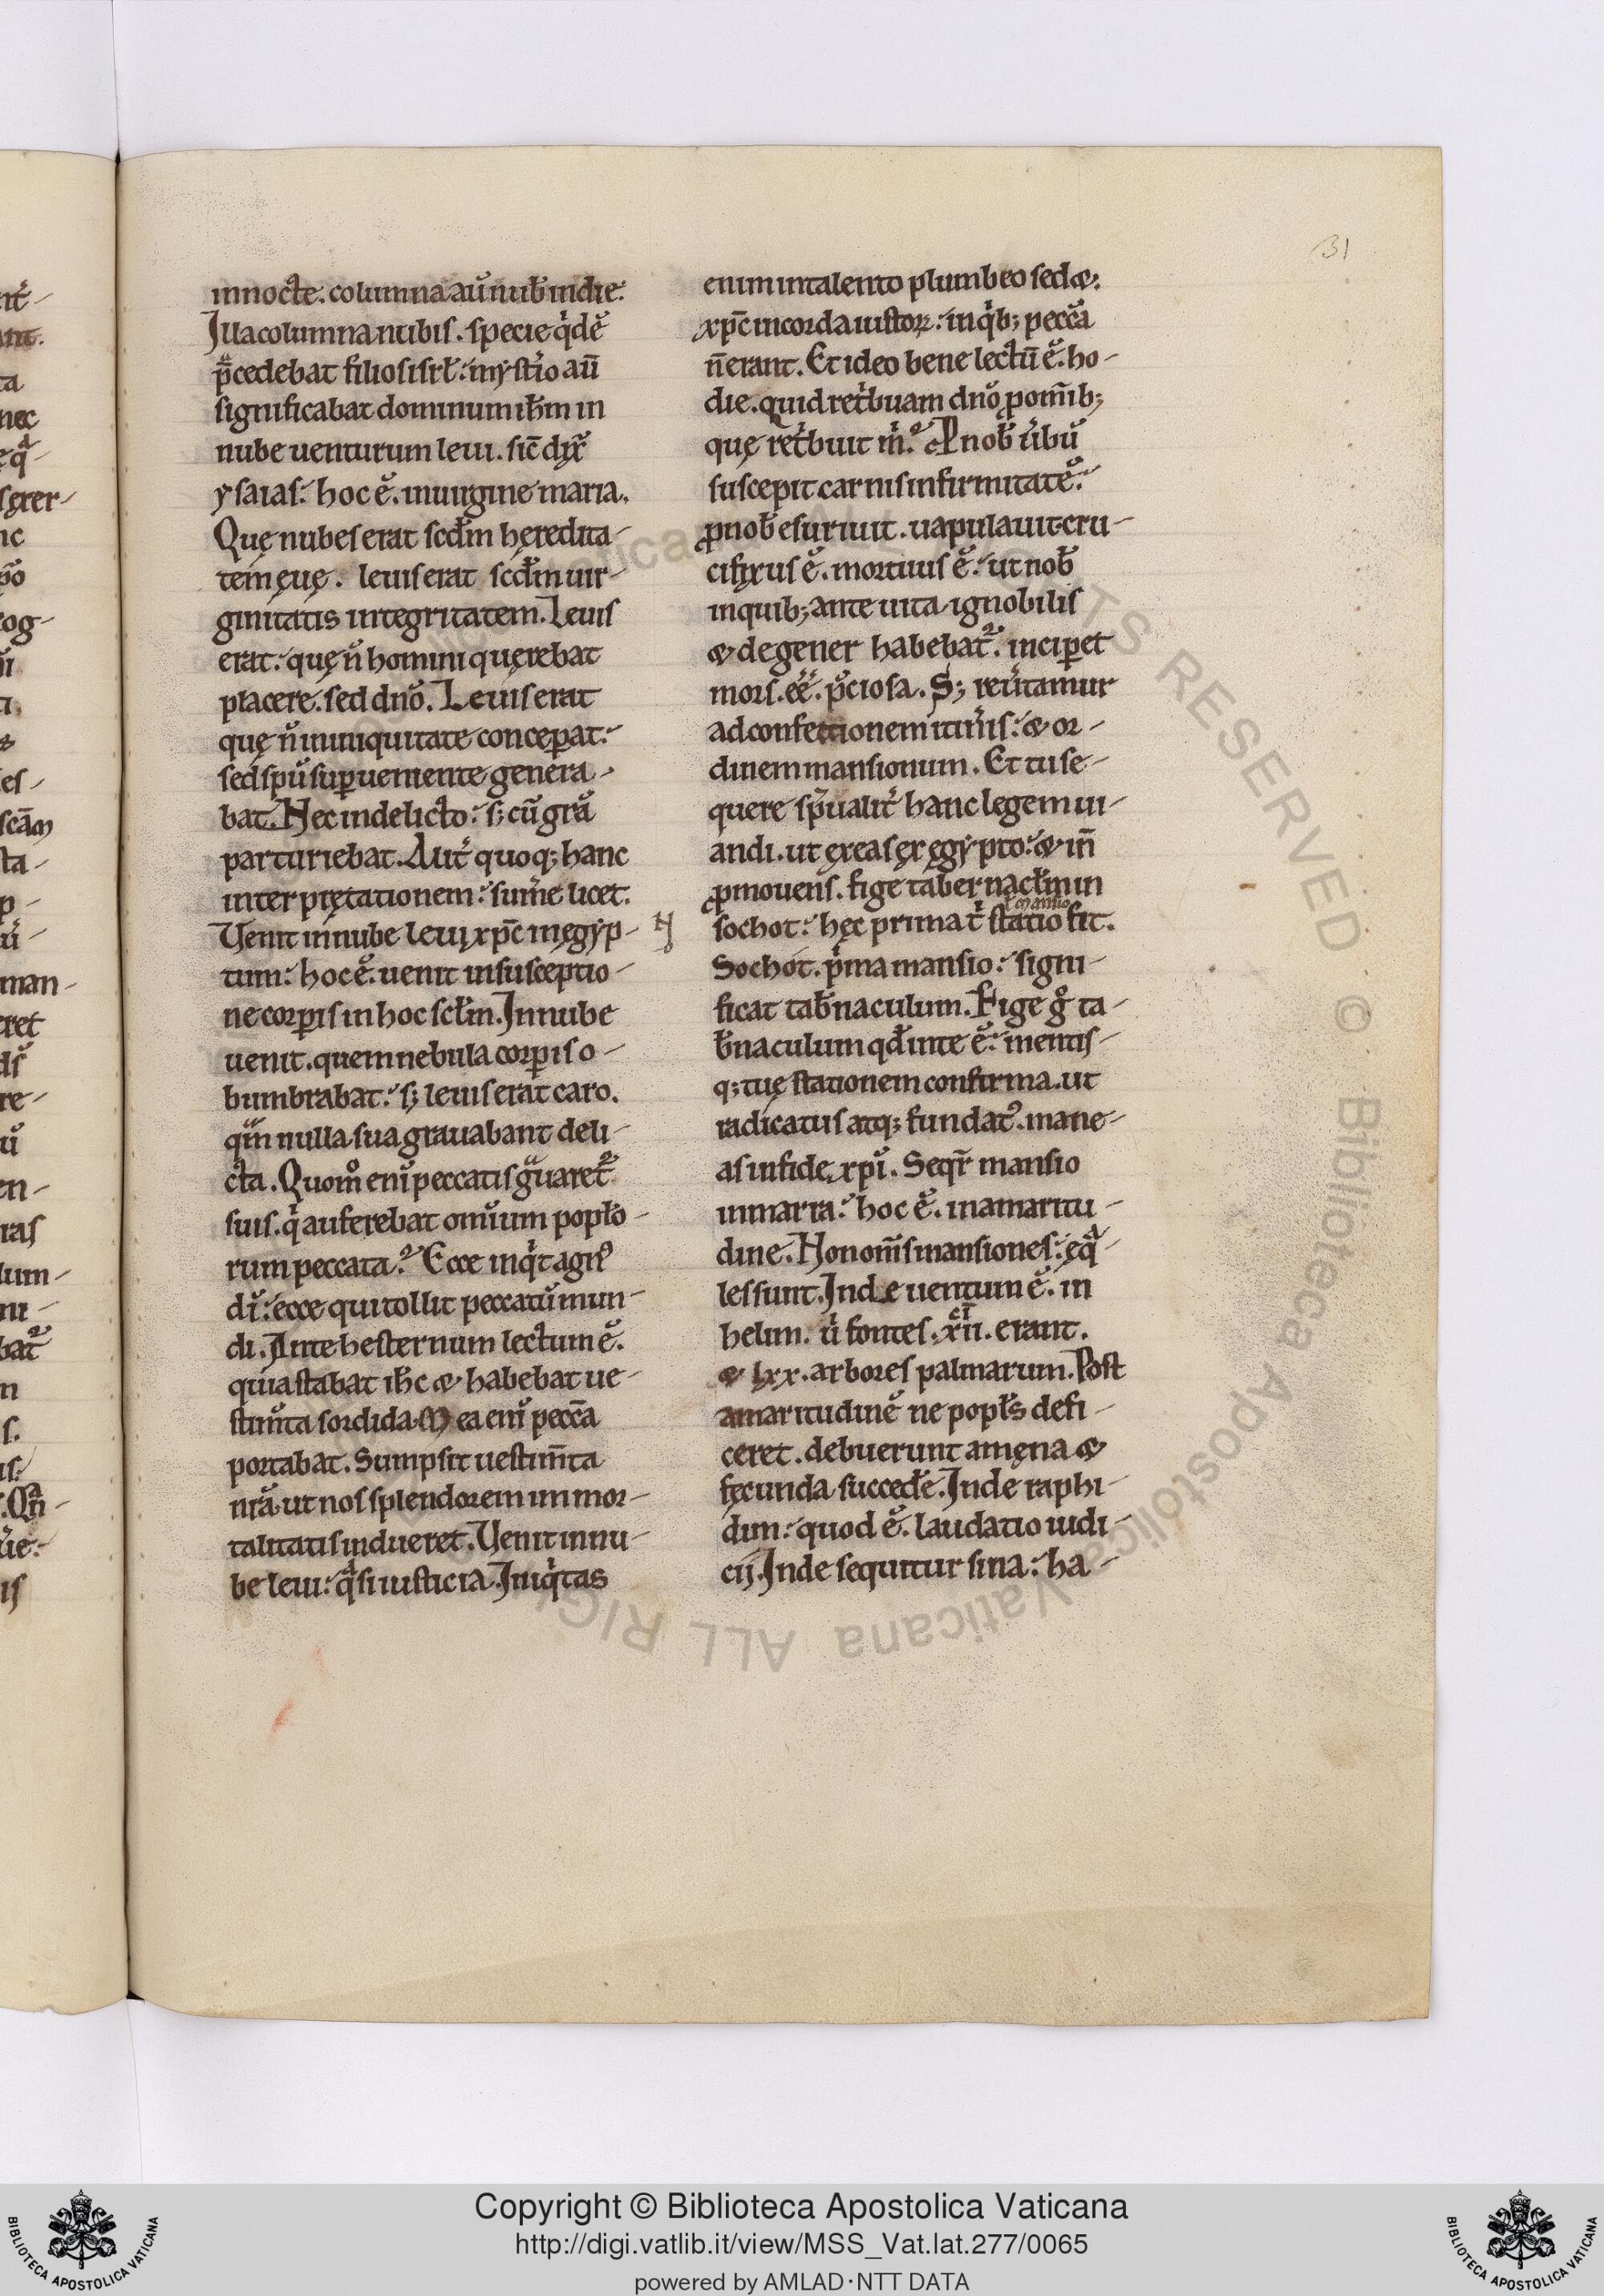 31
in nocte. columna aū nub̄ in die.
Illa columna nubis. specie q̇dē
p̄cedebat filios isrl̄. mystio aū
significabat dominum ih̄m in
nube uenturum leui. sic̄ dix̄
ysaias. hoc ē. in uirgine maria.
Quę nubes erat scd̄m hęredita-
tem ęuę. leuis erat scd̄m uir-
ginitatis integritatem. Leuis
erat. quę n̄ homini quęrebat
placere. sed dn̄o. Leuis erat
quę n̄ in iniquitate conceꝑat.
sed spū suꝑueniente genera-
bat. Nec in delicto. s; cū gr̄a
parturiebat. Aut̄ quoq; hanc
interpretationem. sum̄e licet.
Venit in nube leui xp̄c in ęgyp-
tum. hoc ē. uenit in susceptio-
ne corꝑis in hoc scl̄m. In nube
uenit. quem nebula corꝑis o-
bumbrabat. s; leuis erat caro.
qm̄ nulla sua grauabant deli-
cta. Quom̊ enī peccatis g̃uaret᷑
suis. q̇ auferebat omīum popl̄o-
rum peccata? Ecce inq̇t agn᷒
dī. ecce qui tollit peccatū mun-
di. Ante hesternum lectum ē.
quia stabat ih̄c & habebat ue-
stim̄ta sordida. Mea enī pecc̄a
portabat. Sumpsit uestim̄ta
nr̄a. ut nos splendorem immor-
talitatis indueret. Venit in nu-
be leui. q̃si iusticia. Iniq̇tas
enim in talento plumbeo sed&.
xp̄c in corda iustoꝝ. in q̇b; pecc̄a
n̄ erant. Et ideo bene lectū ē. ho-
die. quid reṫbuam dn̄o ꝓ om̄ib;
quę reṫbuit ṁ? P nob̄ ūbū
suscepit carnis infirmitatē.
ꝓ nob̄ esuriuit. uapulauit. cru-
cifixus ē. mortuus ē. ut nob̄
in quib; ante uita ignobilis
& degener habebat᷑. inciꝑet
mors. ēē. p̄ciosa. S; reūtamur
ad confectionem itin̄is. & or-
dinem mansionum. Et tu se-
quere spūalit̄ hanc legem ui-
andi. ut exeas ex ęgypto. & in̄
ꝓmouens. fige tabernacl̄m in
ł mansio
sochot. hęc prima t̄ statio sit.
Sochot. ṗma mansio. signi-
ficat tab̄naculum. Fige g̊ ta-
b̄naculum qd̄ in te ē. mentis-
q; tuę stationem confirma. ut
radicatus atq; fundat᷒. mane-
as in fide xpī. Seqr̄ mansio
in maria. hoc ē. in amaritu-
dine. Non om̄s mansiones. eq̃-
les sunt. Inde uentum ē. in
helim. ū fontes. xii. erant.
& lxx. arbores palmarum. Post
amaritudinē ne popl̄s defi-
ceret. debuerunt amęna &
fęcunda succed̄e. Inde raphi-
dim. quod ē. laudatio iudi-
cij. Inde sequitur sina. ha-
Copyright © Biblioteca Apostolica Vaticana
http://digi.vatlib.it/view/MSS_Vat.lat.277/0065
powered by AMLAD·NTT DATA
BIBLIOTECA APOSTOLICA VATICANA
BIBLIOTECA APOSTOLICA VATICANA